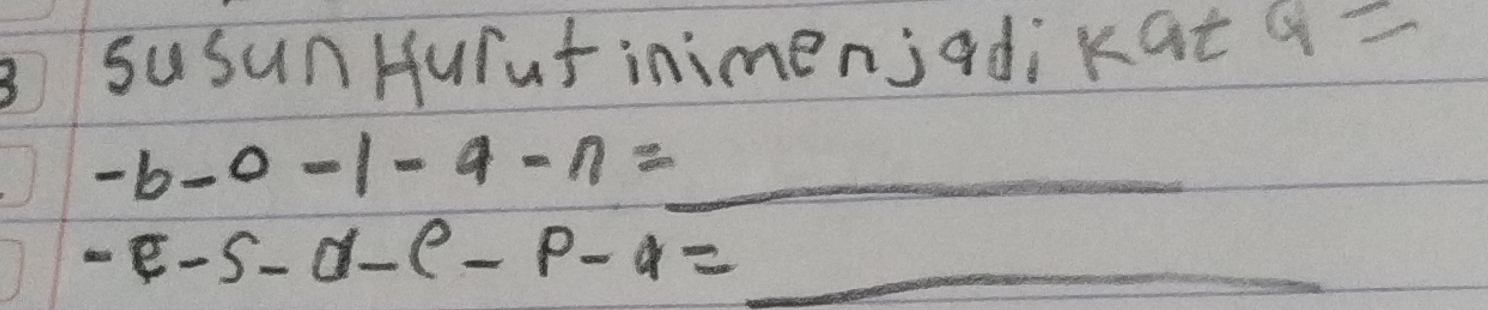 3 susun Huruf ini menjadi kata =
-b-o-l-a-n= ________
-e-s-d-e-p-a= ________